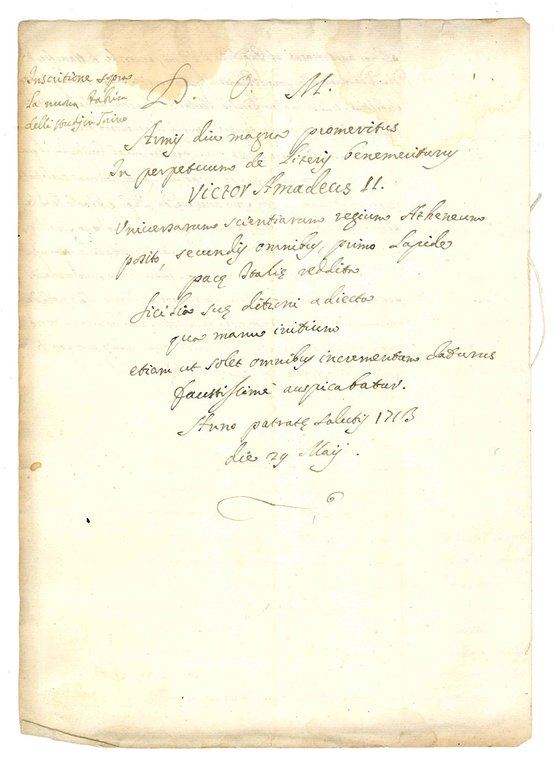 Inscritione sopra
la nuova fabrica
delli studij in Turino
D. O. M.
Armis diu magna promeritus
In perpetuum de Literis benemeriturus
Victor Amadeus II.
Universarum scientiarum regium Atheneum
posito, secundis omnibus, primo lapide
pacę Italię reddita
Sicilia suę ditioni adiecta
qua manu initium
etiam ut solet omnibus incrementum daturus
faustissimè auspicabatur.
Anno patratę salutis 1713
die 29 Maij.